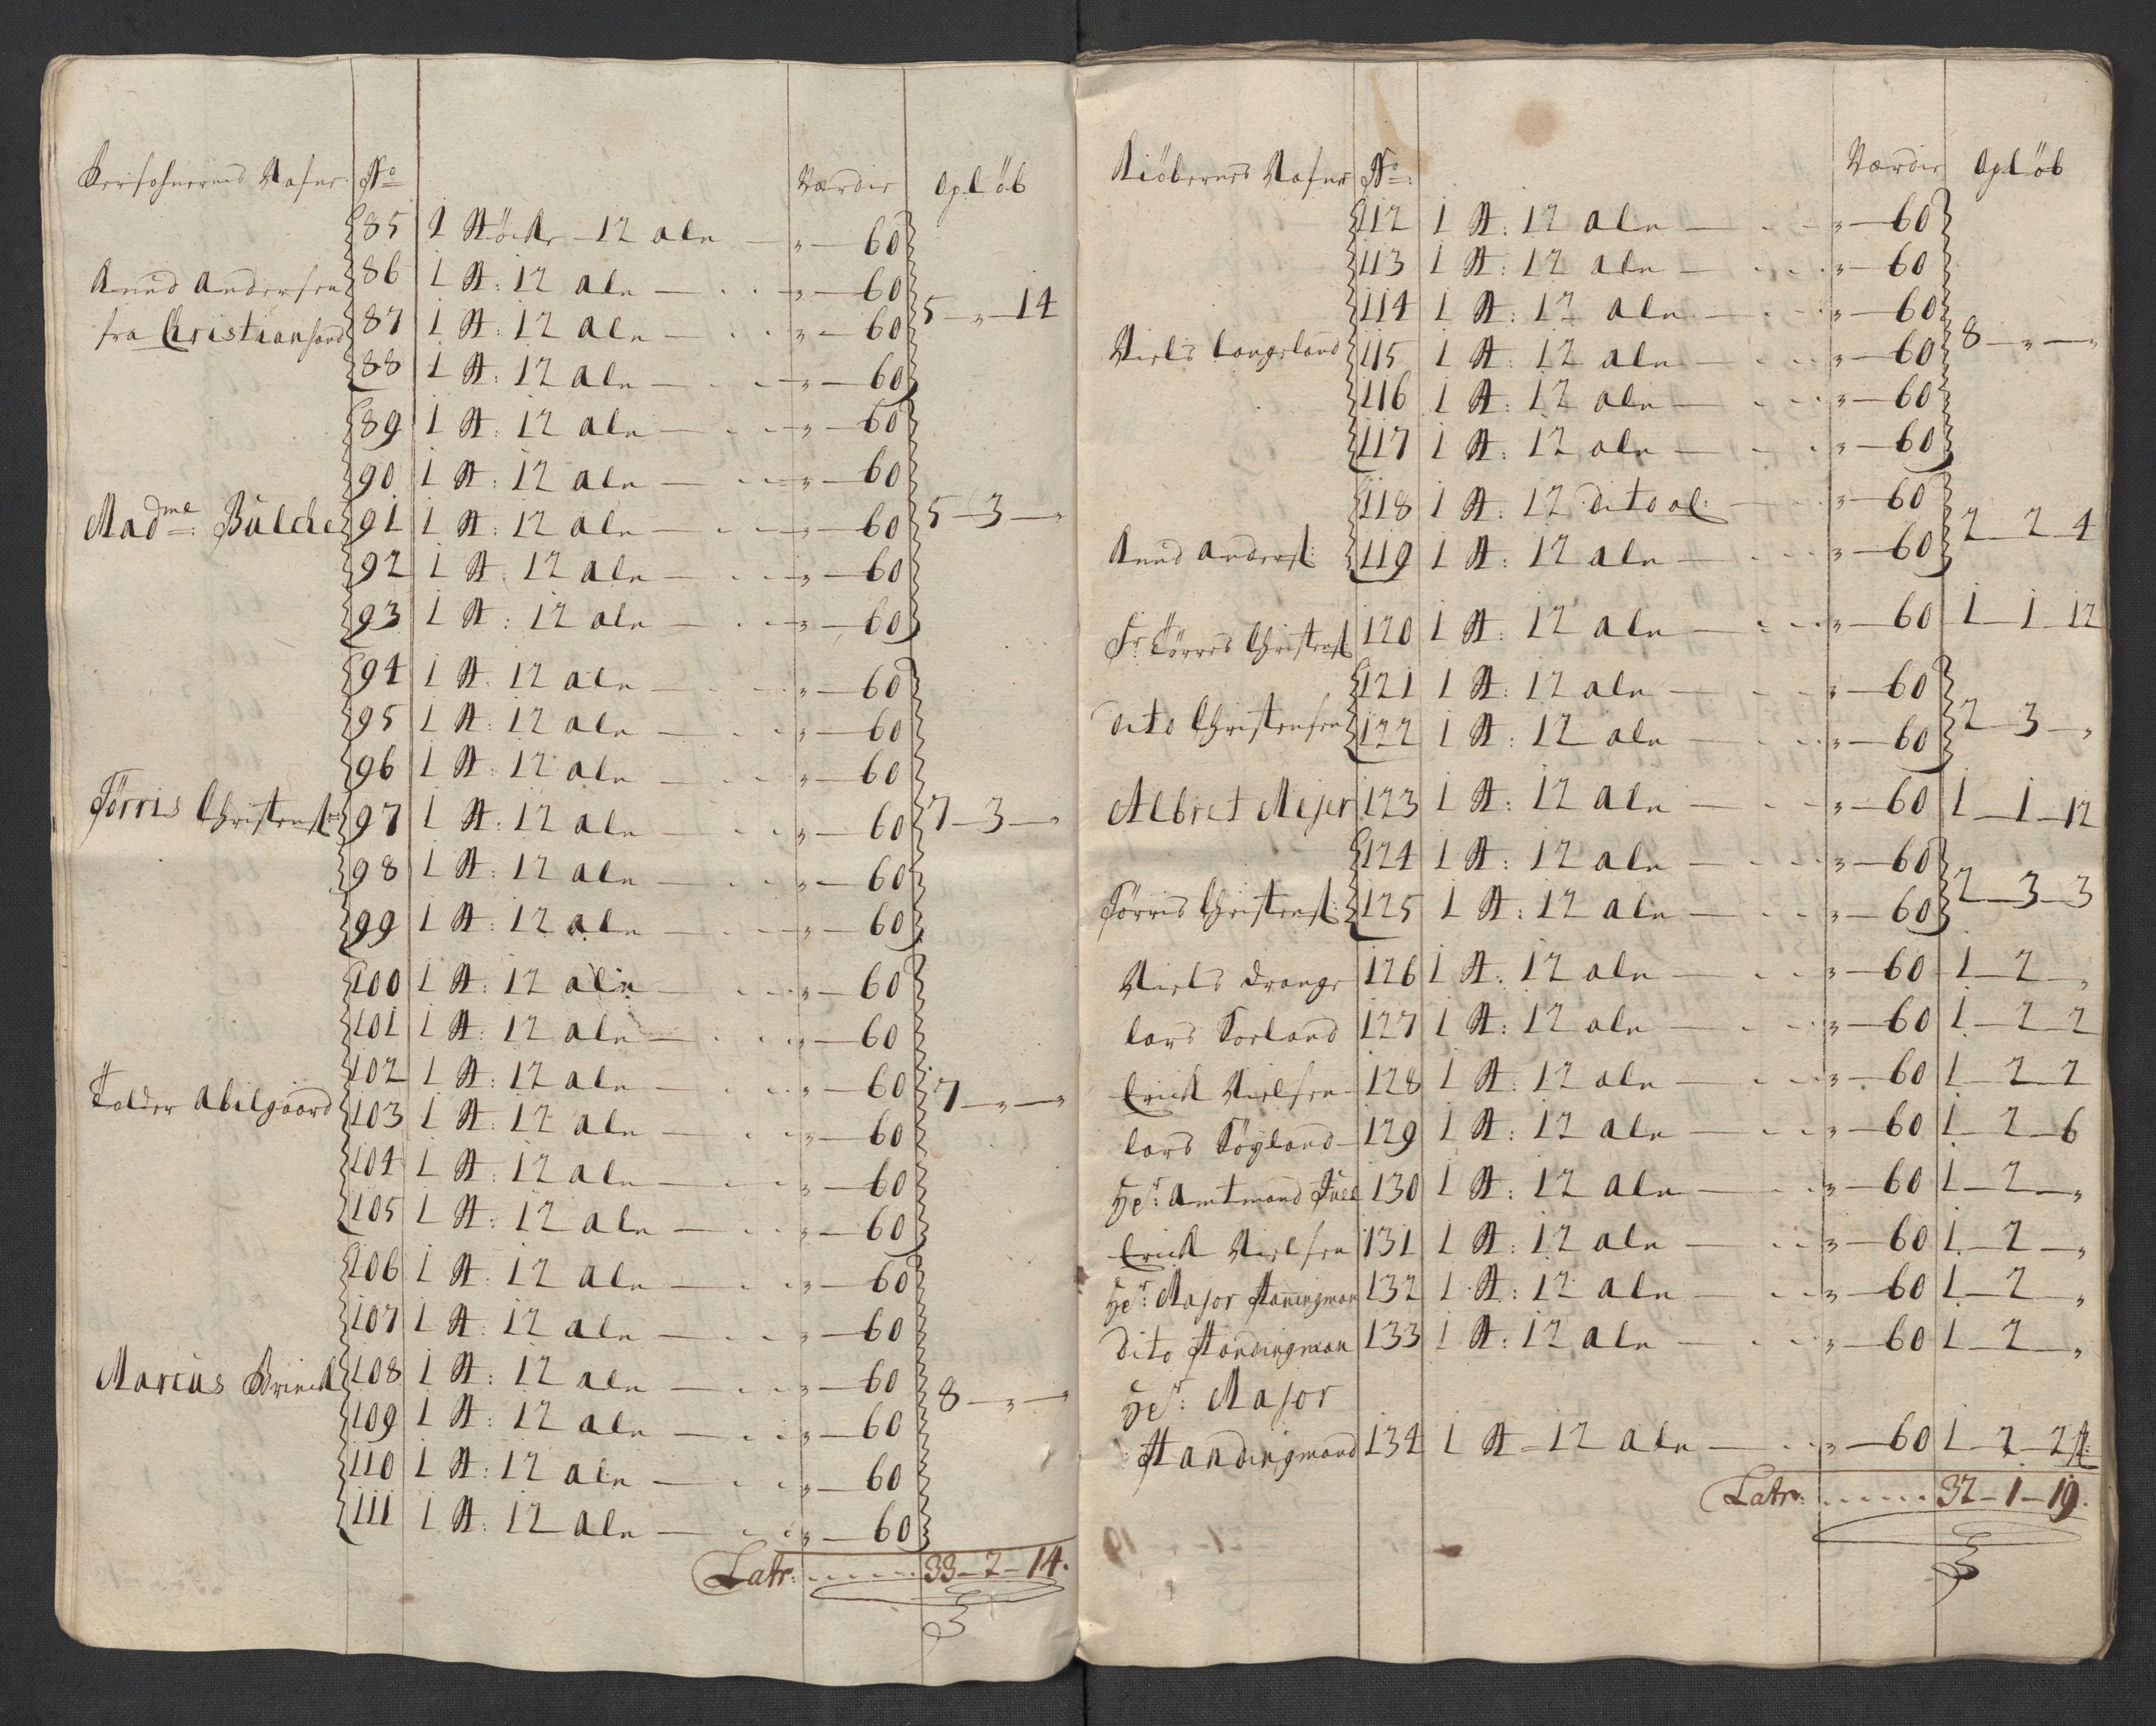 Persohnernes Nafne No Værdie Opløb
85 1 Støcke 12 aln „ 60
86 1 St: 12 aln „ 60
Knud Andersen
fra Christiansand 87 1 St: 12 aln „ 60 5 „ 14
88 1 St: 12 aln „ 60
89 1 St: 12 aln „ 60
90 1 St: 12 aln „ 60
Madme: Bülche 91 1 St: 12 aln „ 60 5 3 „
92 1 St: 12 aln „ 60
93 1 St: 12 aln „ 60
94 1 St: 12 aln „ 60
95 1 St: 12 aln „ 60
96 1 St: 12 aln „ 60
Törris Christens: 97 1 St: 12 aln „ 60 7 3 „
98 1 St: 12 aln „ 60
99 1 St: 12 aln „ 60
100 1 St: 12 aln „ 60
101 1 St: 12 aln „ 60
102 1 St: 12 aln „ 60
Tolder Abilgaard 103 1 St: 12 aln „ 60 7 „ „
104 1 St: 12 aln „ 60
105 1 St: 12 aln „ 60
106 1 St: 12 aln „ 60
107 1 St: 12 aln „ 60
Marcus Brinck 108 1 St: 12 aln „ 60 8 „ „
109 1 St: 12 aln „ 60
110 1 St: 12 aln „ 60
111 1 St: 12 aln „ 60
Latr: 33 - 2 - 14.
Kiöbernes Nafne No: Værdie Opløb
112 1 St: 12 aln „ 60
113 1 St: 12 aln „ 60
114 1 St: 12 aln „ 60
Niels Langeland 115 1 St: 12 aln „ 60 8 „ „
116 1 St: 12 aln „ 60
117 1 St: 12 aln „ 60
118 1 St: 12 dito al: „ 60
Knud Anders: 119 1 St: 12 aln „ 60 2 2 4
Sr Törres Christens: 120 1 St: 12 aln „ 60 1 1 12
121 1 St: 12 aln „ 60
dito Christensen 122 1 St: 12 aln „ 60 2 3 „
Albret Mejer 123 1 St: 12 aln „ 60 1 1 12
124 1 St: 12 aln „ 60
Törris Christens: 125 1 St: 12 aln „ 60 2 3 3
Niels Drange 126 1 St: 12 aln „ 60 1 2 „
Lars 127 1 St: 12 aln „ 60 1 2 2
Erick Nielsen 128 1 St: 12 aln „ 60 1 2 2
Lars 129 1 St: 12 aln „ 60 1 2 6
Hr: Amtmand Juel 130 1 St: 12 aln „ 60 1 2 „
Erick Nielsen 131 1 St: 12 aln „ 60 1 2 „
Hr: Major 132 1 St: 12 aln „ 60 1 2 „
dito 133 1 St: 12 aln „ 60 1 2 „
Hr: Major
134 1 St 12 aln „ 60 1 2 2 st:
Latr: 32 - 1 - 19.